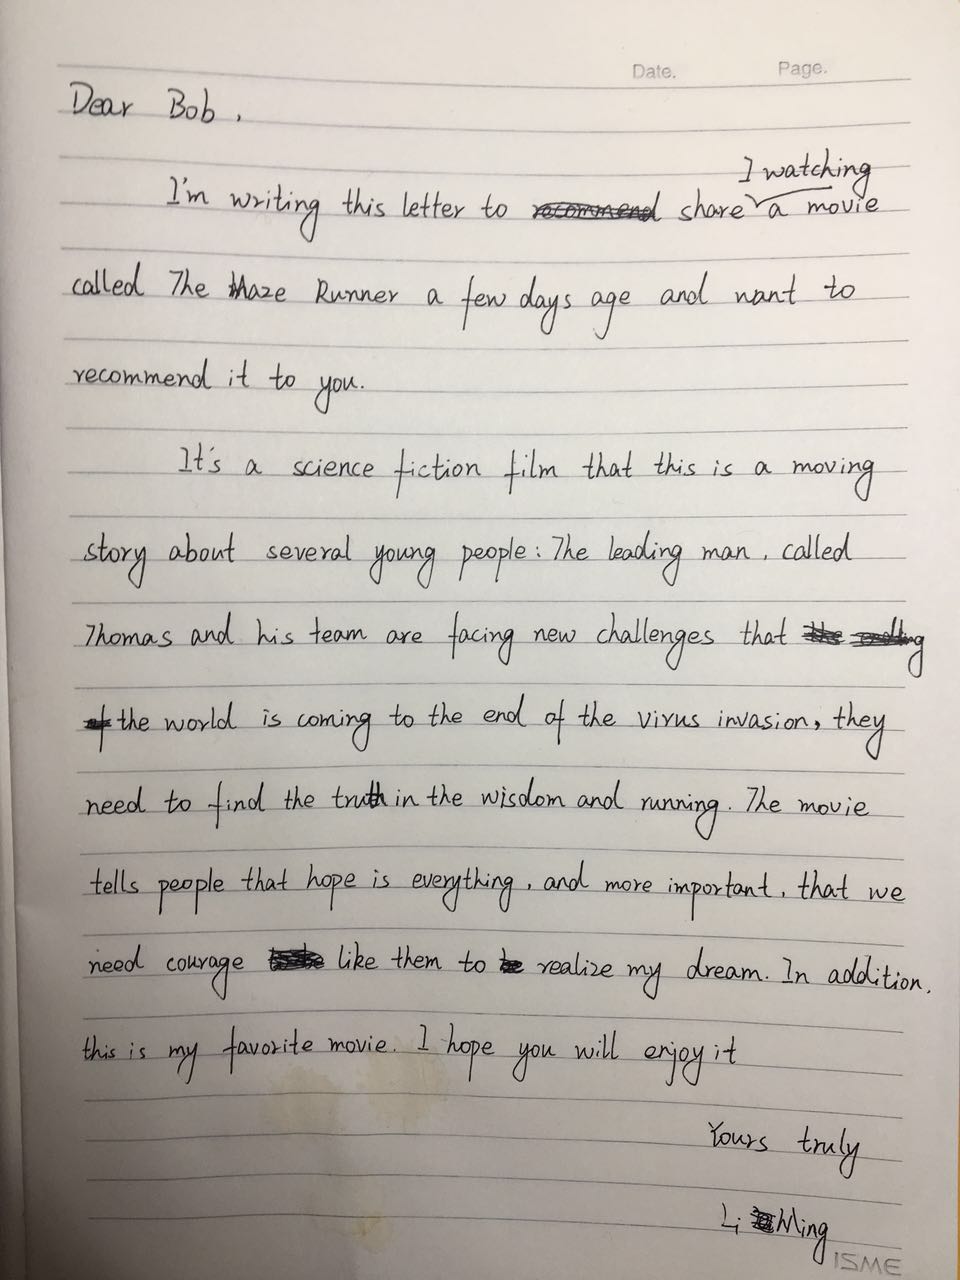 Date. Page.
Dear Bob,
I watching
I'm writing this letter to share a movie
called The Maze Runner a few days age and want to
recommend it to you.
It's a science fiction film that this is a moving
story about several young people: The leading man, called
Thomas and his team are facing new challenges that
the world is coming to the end of the virus invasion, they
need to find the truth in the wisdom and running. The movie
tells people that hope is everything, and more important, that we
need courage like them to realize my dream. In addition,
this is my favorite movie. I hope you will enjoy it
Yours truly
Li Ming
ISME